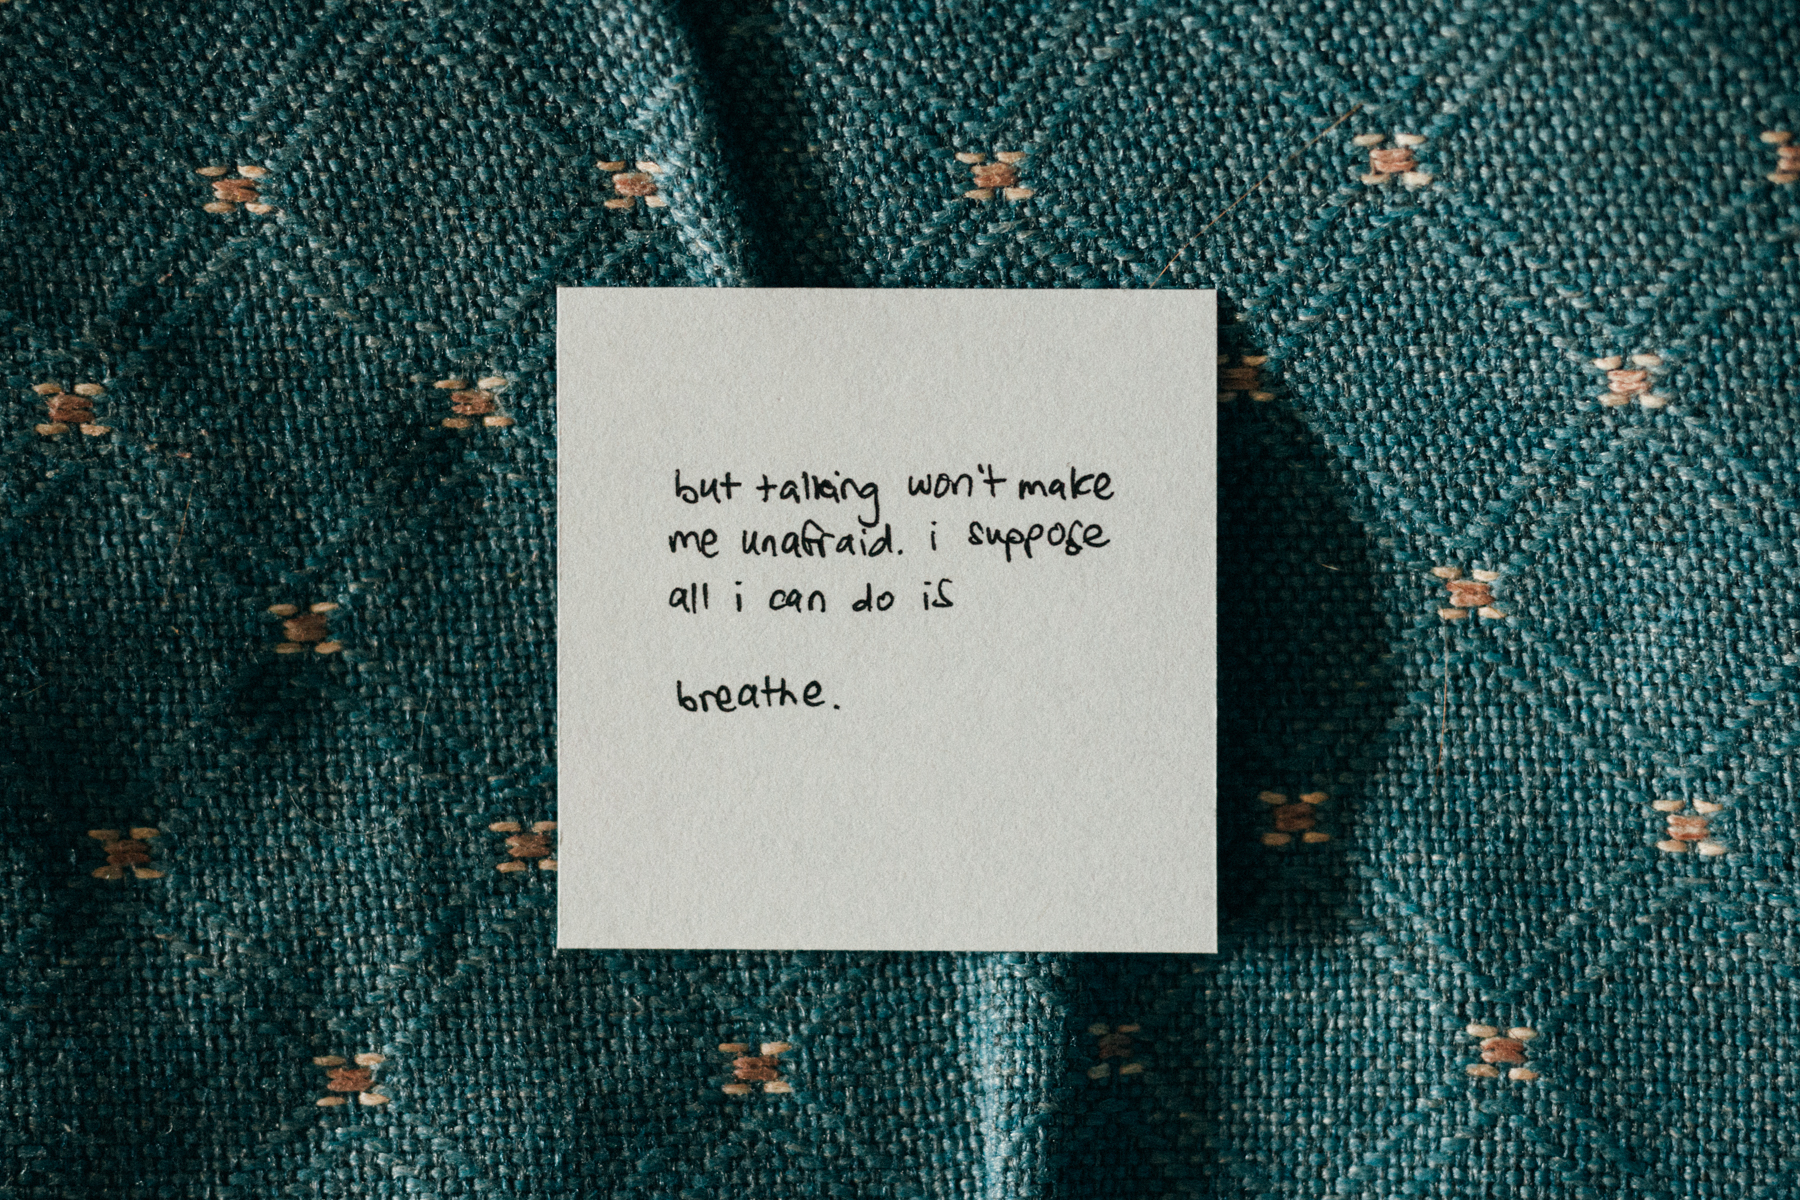 but talking won't make
me unafraid. i suppose
all i can do is
breathe.